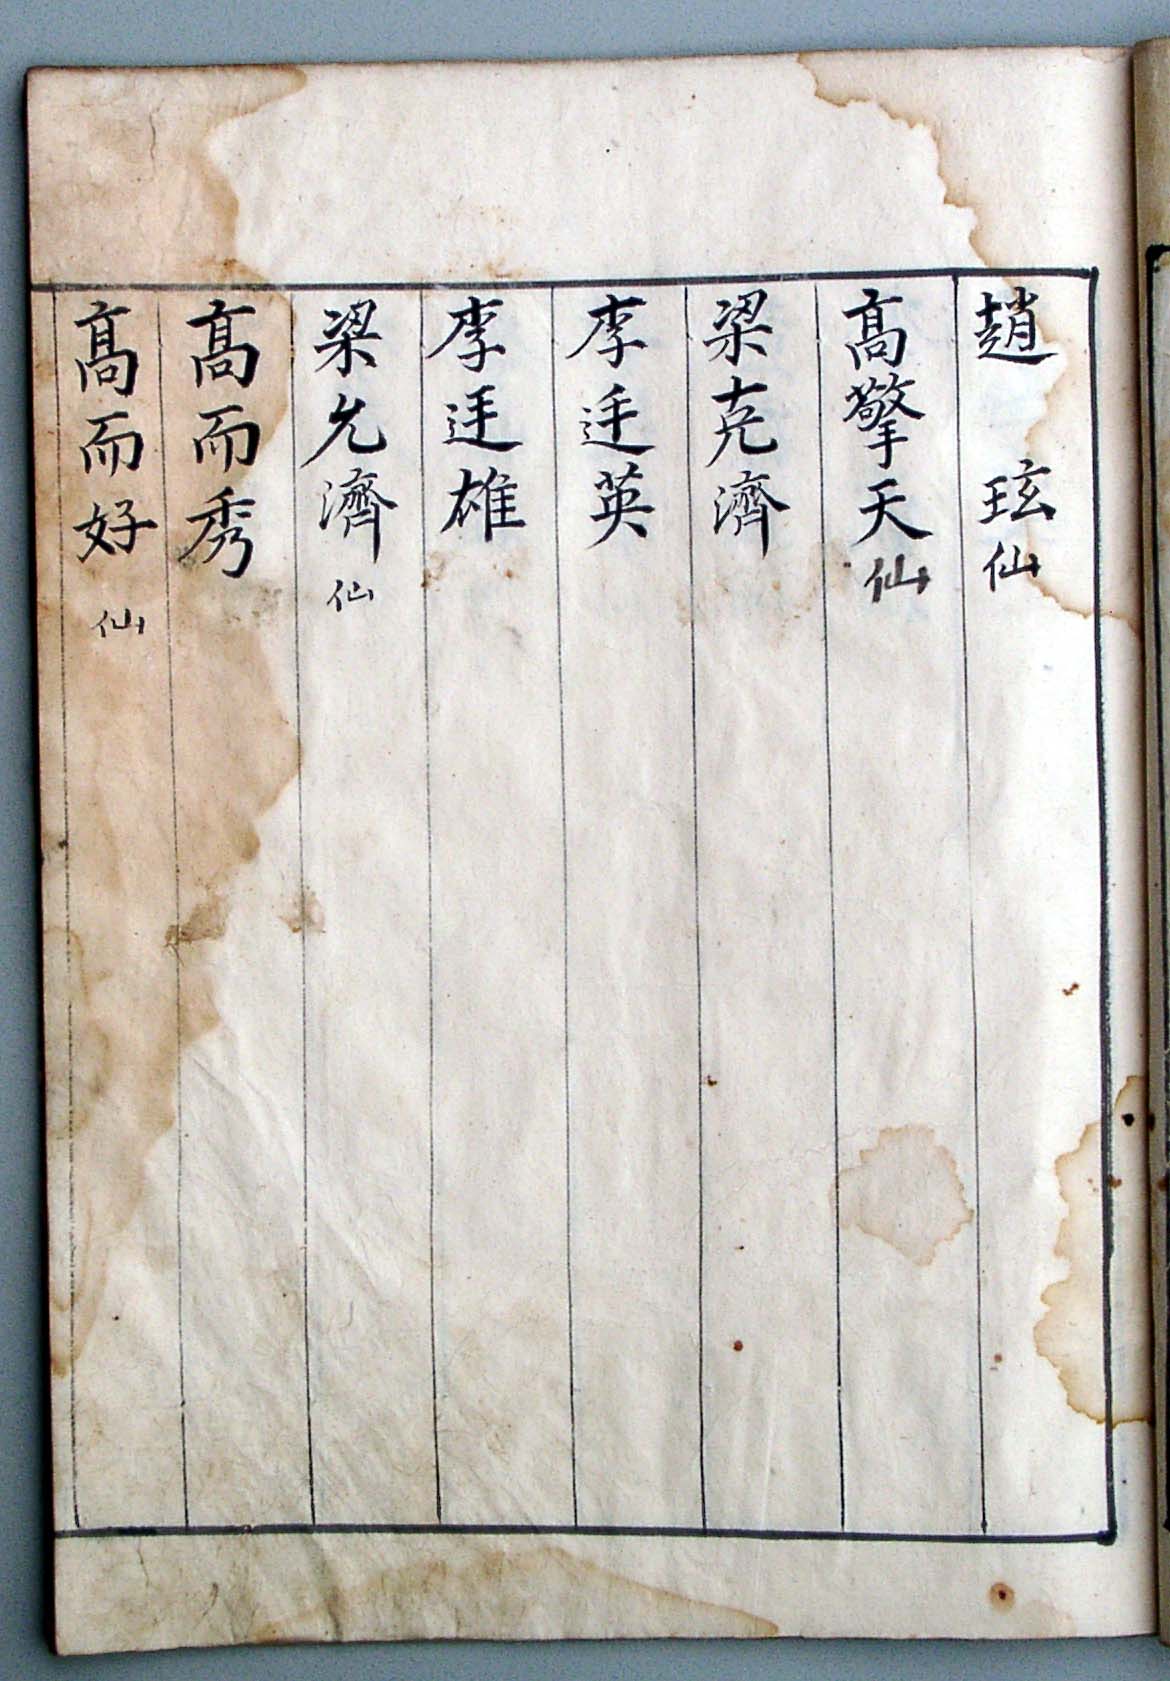 趙 玹 仙
高擎天 仙
梁克濟
李廷英
李廷雄
梁允濟 仙
高而秀
高而好 仙